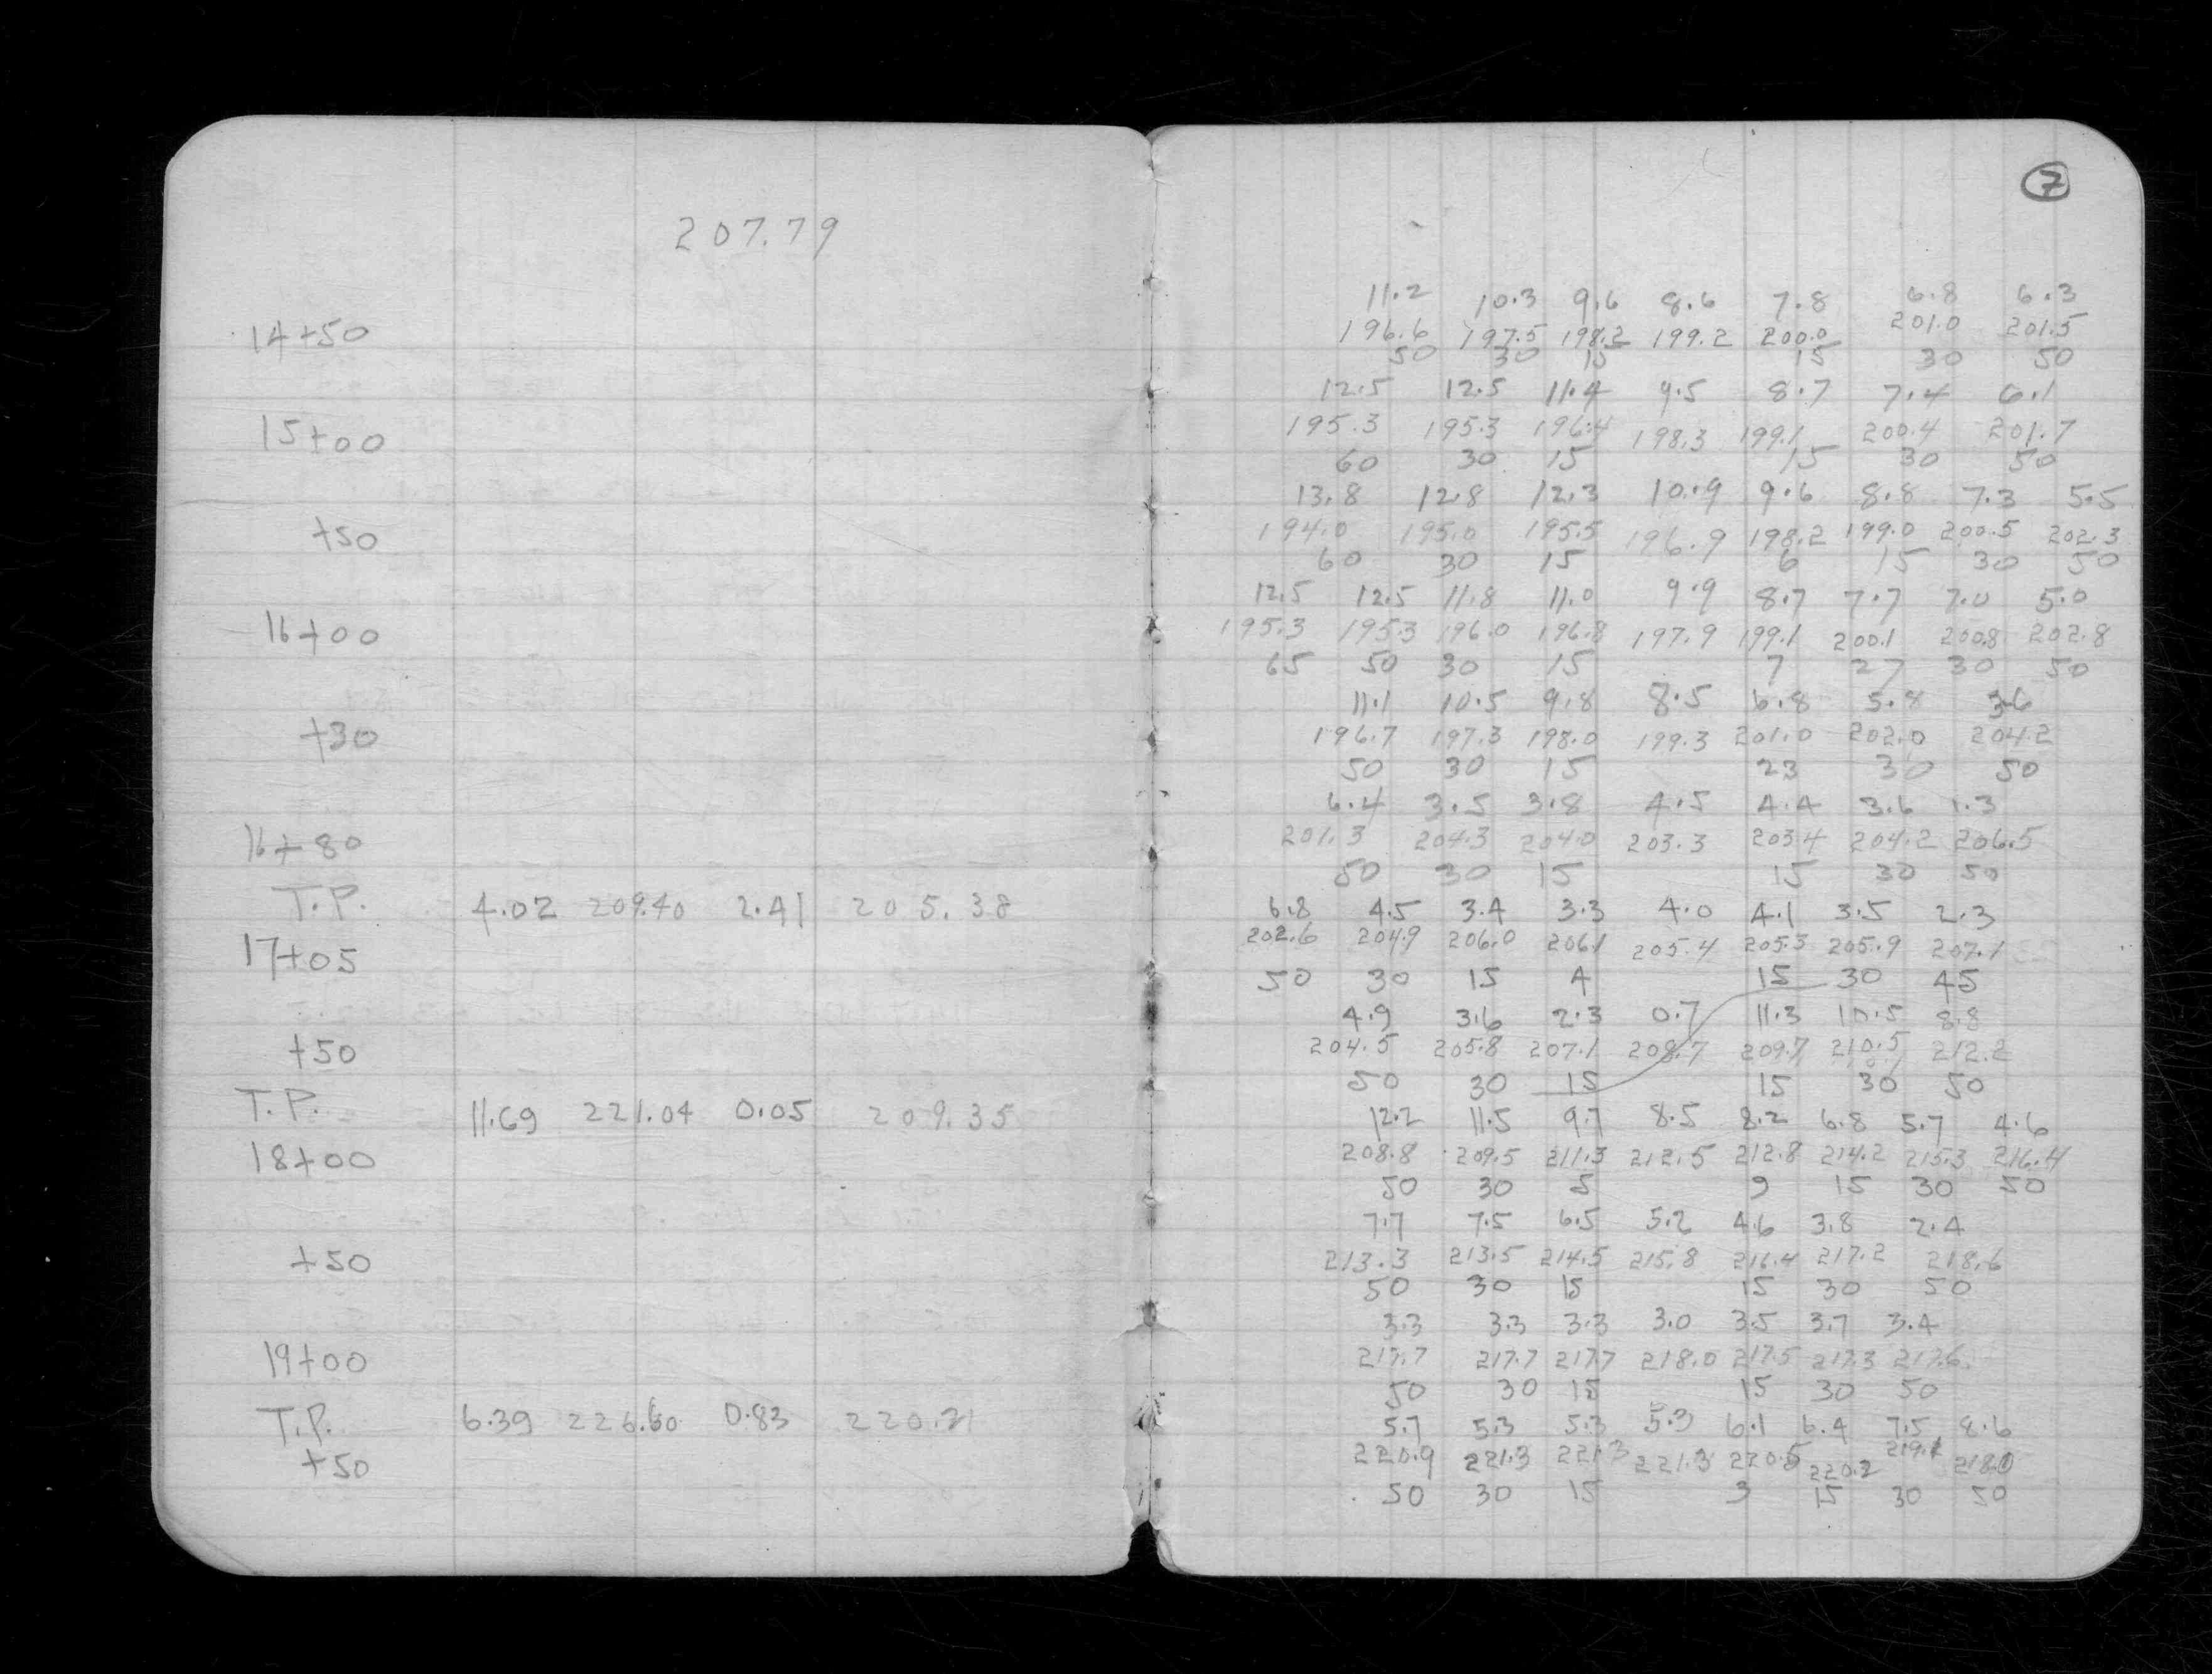 207.79
14+50
15+00
+50
16+00
+30
16+80
T.P. 4.02 209.40 2.41 205.38
17+05
+50
T.P. 11.69 221.04 0.05 209.35
18+00
+50
19+00
T.P. 6.39 226.60 0.83 220.21
+50
7
11.2 10.3 9.6 8.6 7.8 6.8 6.3
196.6 197.5 198.2 199.2 200.0 201.0 201.5
50 30 15 15 30 50
12.5 12.5 11.4 9.5 8.7 7.4 6.1
195.3 195.3 196.4 198.3 199.1 200.4 201.7
60 30 15 15 30 50
13.8 12.8 12.3 10.9 9.6 8.8 7.3 5.5
194.0 195.0 195.5 196.9 198.2 199.0 200.5 202.3
60 30 15 6 15 30 50
12.5 12.5 11.8 11.0 9.9 8.7 7.7 7.0 5.0
195.3 195.3 196.0 196.8 197.9 199.1 200.1 200.8 202.8
65 50 30 15 7 27 30 50
11.1 10.5 9.8 8.5 6.8 5.8 3.6
196.7 197.3 198.0 199.3 201.0 202.0 204.2
50 30 15 23 30 50
6.4 3.5 3.8 4.5 4.4 3.6 1.3
201.3 204.3 204.0 203.3 203.4 204.2 206.5
50 30 15 15 30 50
6.8 4.5 3.4 3.3 4.0 4.1 3.5 2.3
202.6 204.9 206.0 206.1 205.4 205.3 205.9 207.1
50 30 15 4 15 30 45
4.9 3.6 2.3 0.7 11.3 10.5 8.8
204.5 205.8 207.1 208.7 209.7 210.5 212.2
50 30 15 15 30 50
12.2 11.5 9.7 8.5 8.2 6.8 5.7 4.6
208.8 209.5 211.3 212.5 212.8 214.2 215.3 216.4
50 30 5 9 15 30 50
7.7 7.5 6.5 5.2 4.6 3.8 2.4
213.3 213.5 214.5 215.8 216.4 217.2 218.6
50 30 15 15 30 50
3.3 3.3 3.3 3.0 3.5 3.7 3.4
217.7 217.7 217.7 218.0 217.5 217.3 217.6
50 30 15 15 30 50
5.7 5.3 5.3 5.3 6.1 6.4 7.5 8.6
220.9 221.3 221.3 221.3 220.5 220.2 219.1 218.0
50 30 15 3 15 30 50